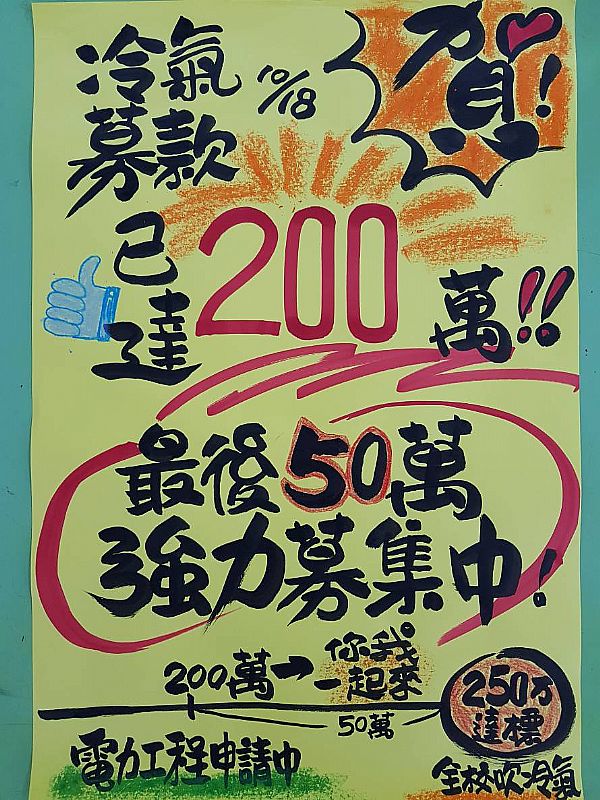 賀!
冷氣
募款
10/18
已達
200
萬!!
最後50萬
強力募集中!
200萬→你我
一起來
50萬
250万
達標
電力工程申請中
全校吹冷氣